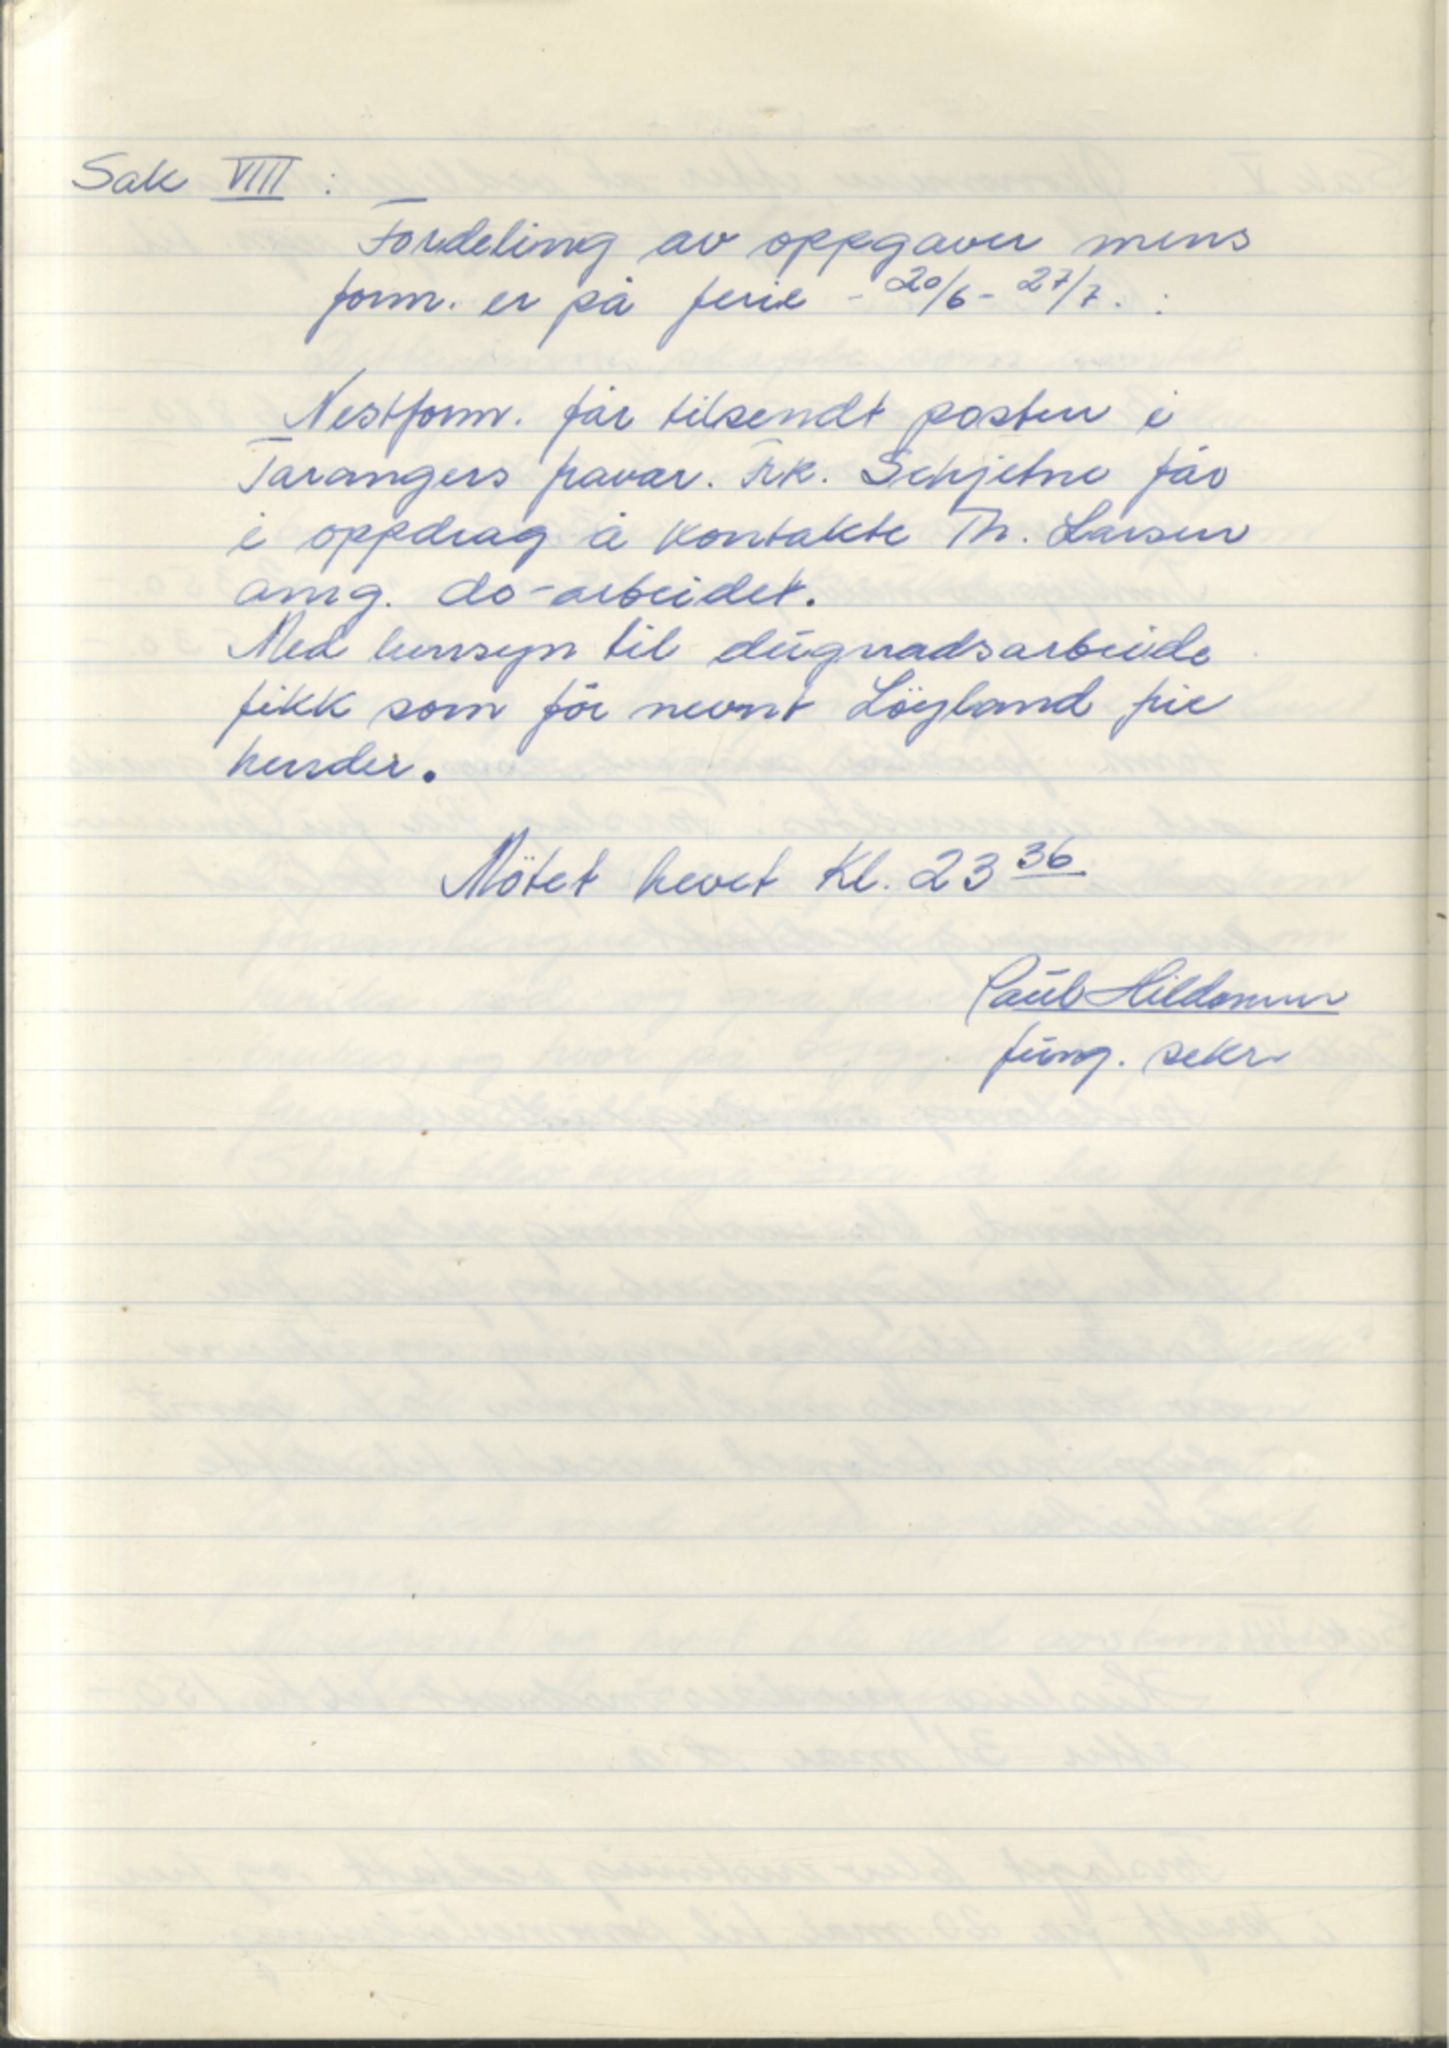 Sak VIII :
Fordeling av oppgaver mens
form. er på ferie - 20/6 - 27/7. :
Nestform. får tilsendt posten i
Tarangers fravær. Frk. Schjetne får
i oppdrag å kontakte Th. Larsen
ang. do-arbeidet.
Med hensyn til dugnadsarbeide
fikk som för nevnt Löyland frie
hender.
Mötet hevet kl. 23 36
Paul
fung. sekr